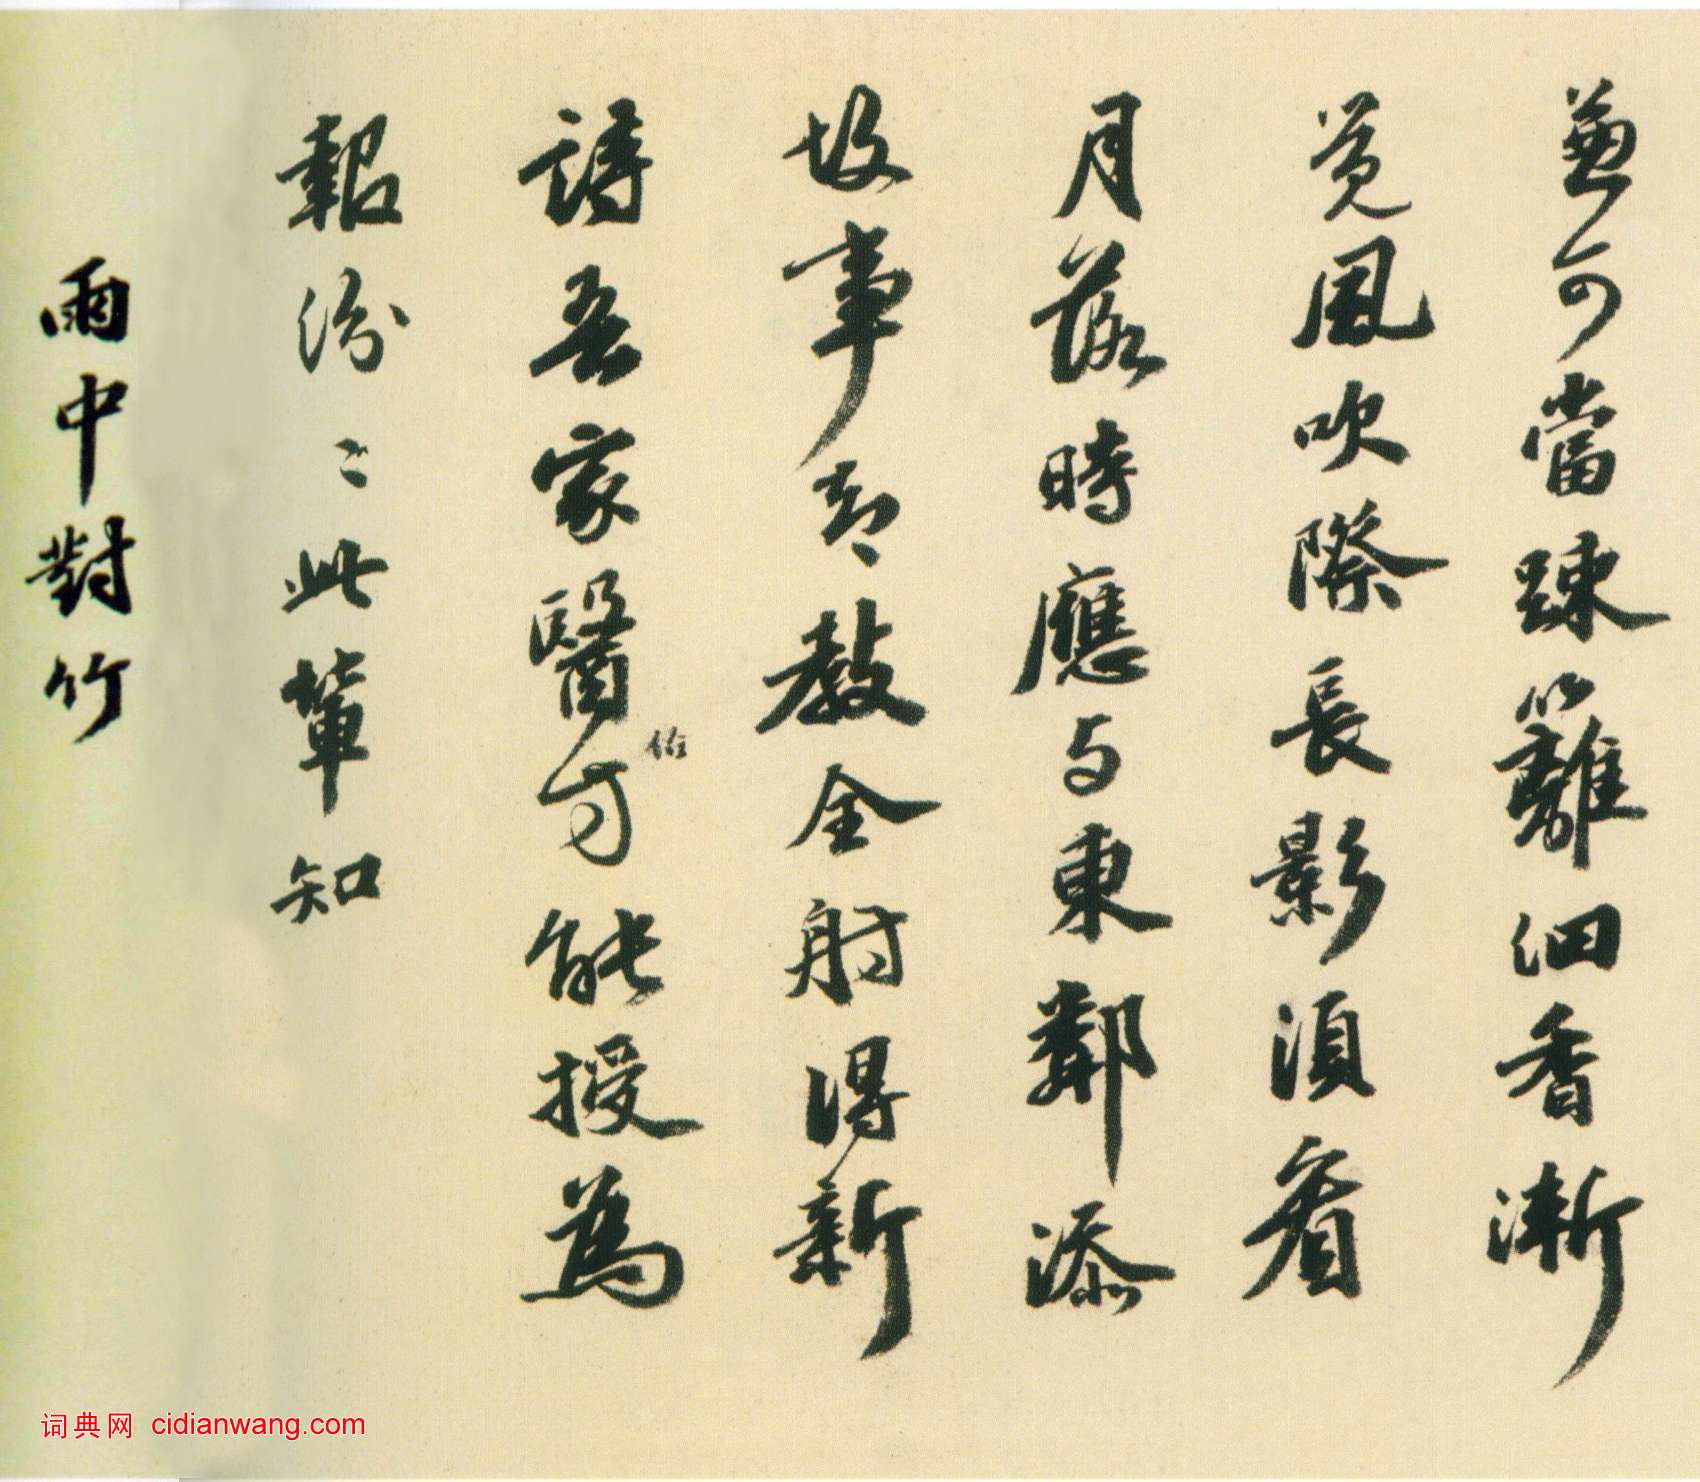 兼可當踈籬細香漸
覓風吹際長影須看
月落時應与東鄰添
故事却教全射得新
詩吾家醫方能授為
俗
報紛〻此輩知
雨中對竹
词典网 cidianwang.com